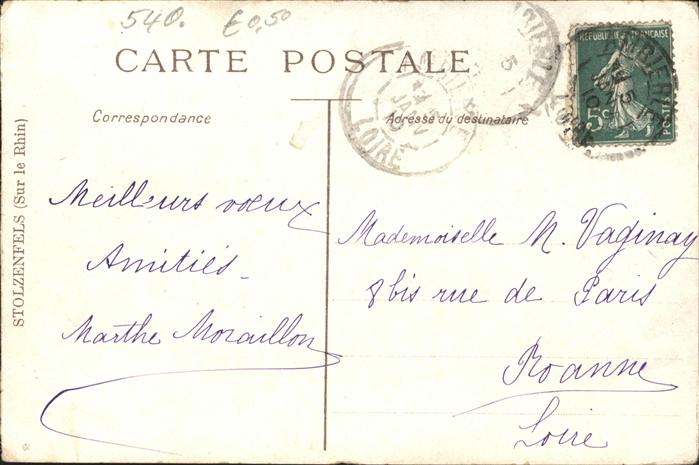 540. £0,50
CARTE POSTALE
Correspondance
Adresse du destinataire
RÉPUBLIQUE FRANÇAISE
5c
POSTES
JANV
LOIRE
STOLZENFELS (Sur le Rhin)
Meilleurs vœux
Amitiés
Marthe Moraillon
Mademoiselle M. Vaginay
8 bis rue de Paris
Roanne
Loire